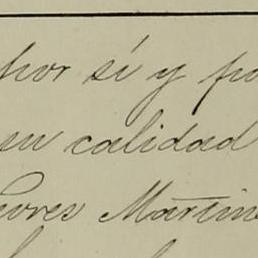 por sí y po
en calidad
ores Martine